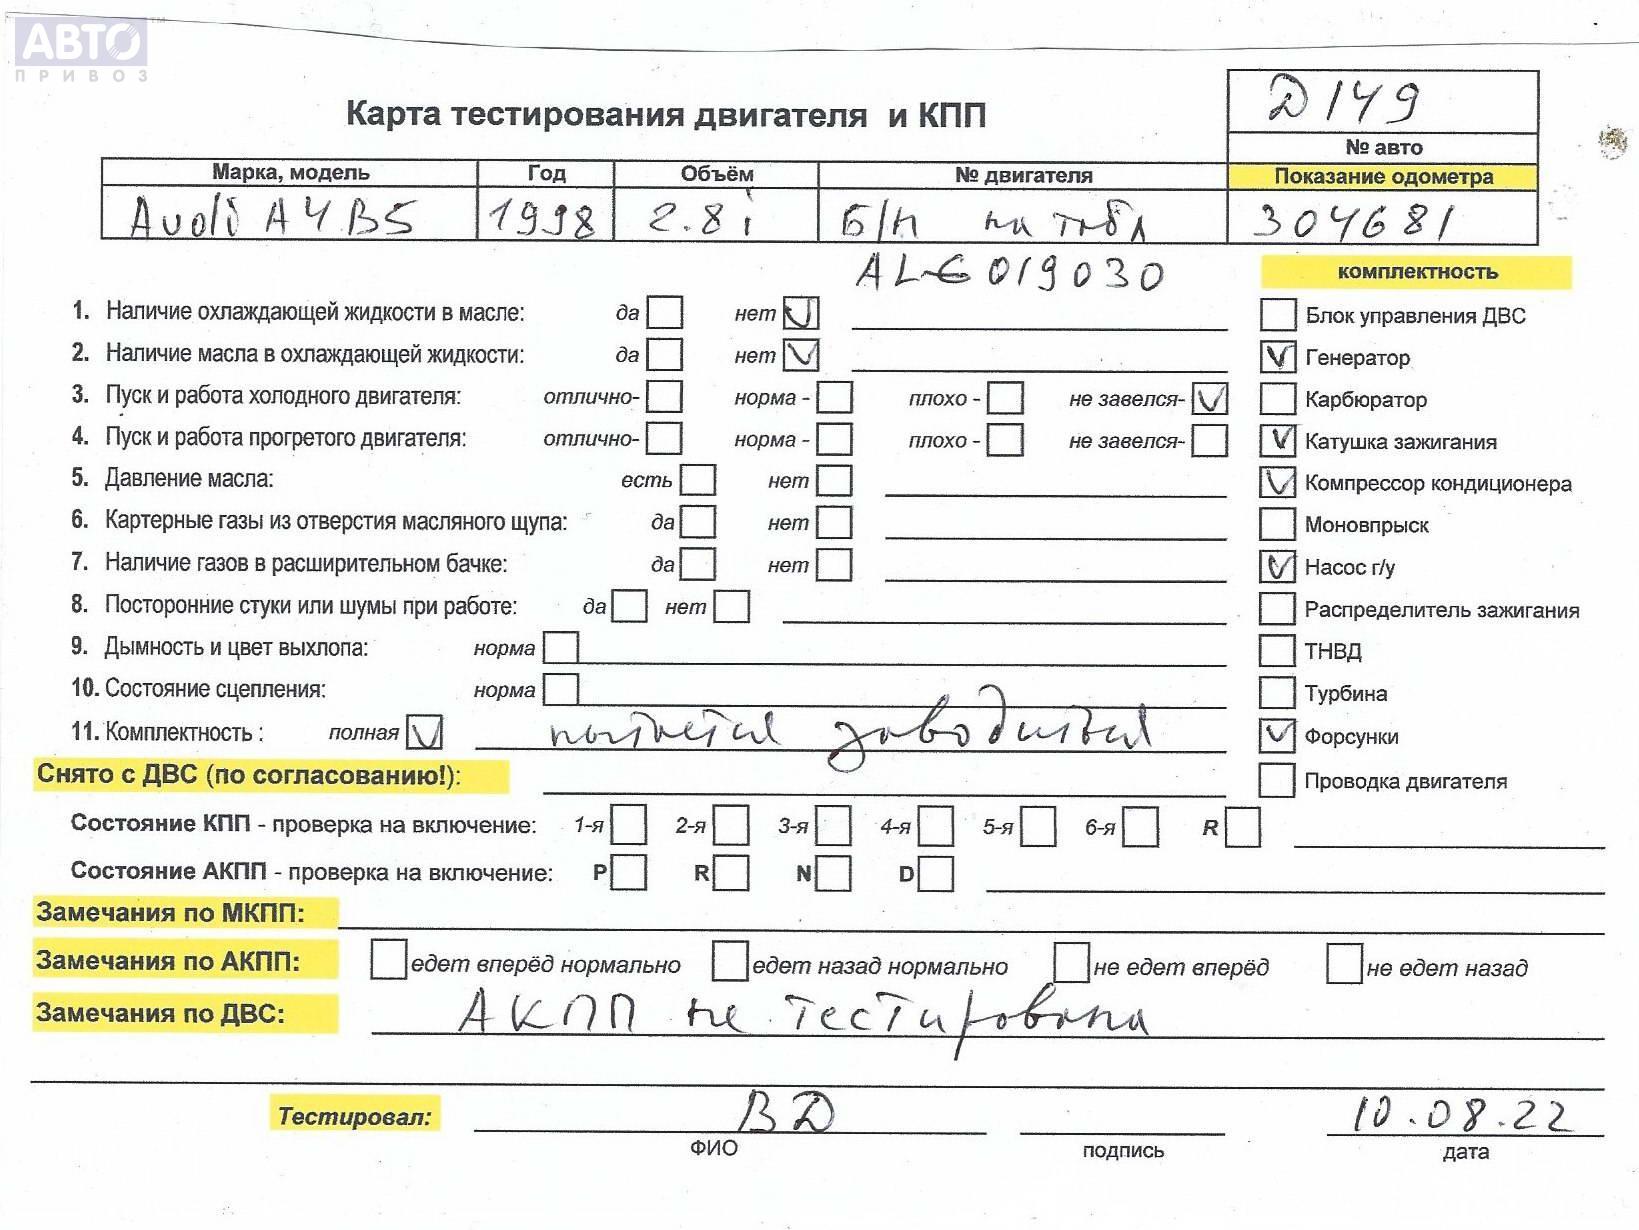 АВТО™
ПРИВОЗ
Карта тестирования двигателя и КПП
D149
№ авто
Марка, модель Год Объём № двигателя Показание одометра
Audi A4 B5 1998 2.8 i Б/Н на ГБЛ 304681
ALG 019030
комплектность
1. Наличие охлаждающей жидкости в масле: да нет V
Блок управления ДВС
2. Наличие масла в охлаждающей жидкости: да нет V
V Генератор
3. Пуск и работа холодного двигателя: отлично- норма - плохо - не завелся- V
Карбюратор
4. Пуск и работа прогретого двигателя: отлично- норма - плохо - не завелся-
V Катушка зажигания
5. Давление масла: есть нет
V Компрессор кондиционера
6. Картерные газы из отверстия масляного щупа: да нет
Моновпрыск
7. Наличие газов в расширительном бачке: да нет
V Насос г/у
8. Посторонние стуки или шумы при работе: да нет
Распределитель зажигания
9. Дымность и цвет выхлопа: норма
ТНВД
10. Состояние сцепления: норма
Турбина
11. Комплектность : полная V пытается заводиться
V Форсунки
Снято с ДВС (по согласованию!):
Проводка двигателя
Состояние КПП - проверка на включение: 1-я 2-я 3-я 4-я 5-я 6-я R
Состояние АКПП - проверка на включение: P R N D
Замечания по МКПП:
Замечания по АКПП: едет вперёд нормально едет назад нормально не едет вперёд не едет назад
Замечания по ДВС: АКПП не тестирована
Тестировал: ВД 10.08.22
ФИО подпись дата